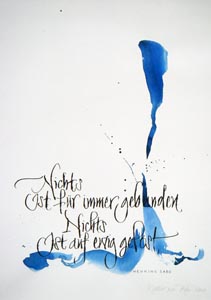 Nichts
Ist für immer gebunden,
Nichts
Ist auf ewig gelöst.
HENNING SABO